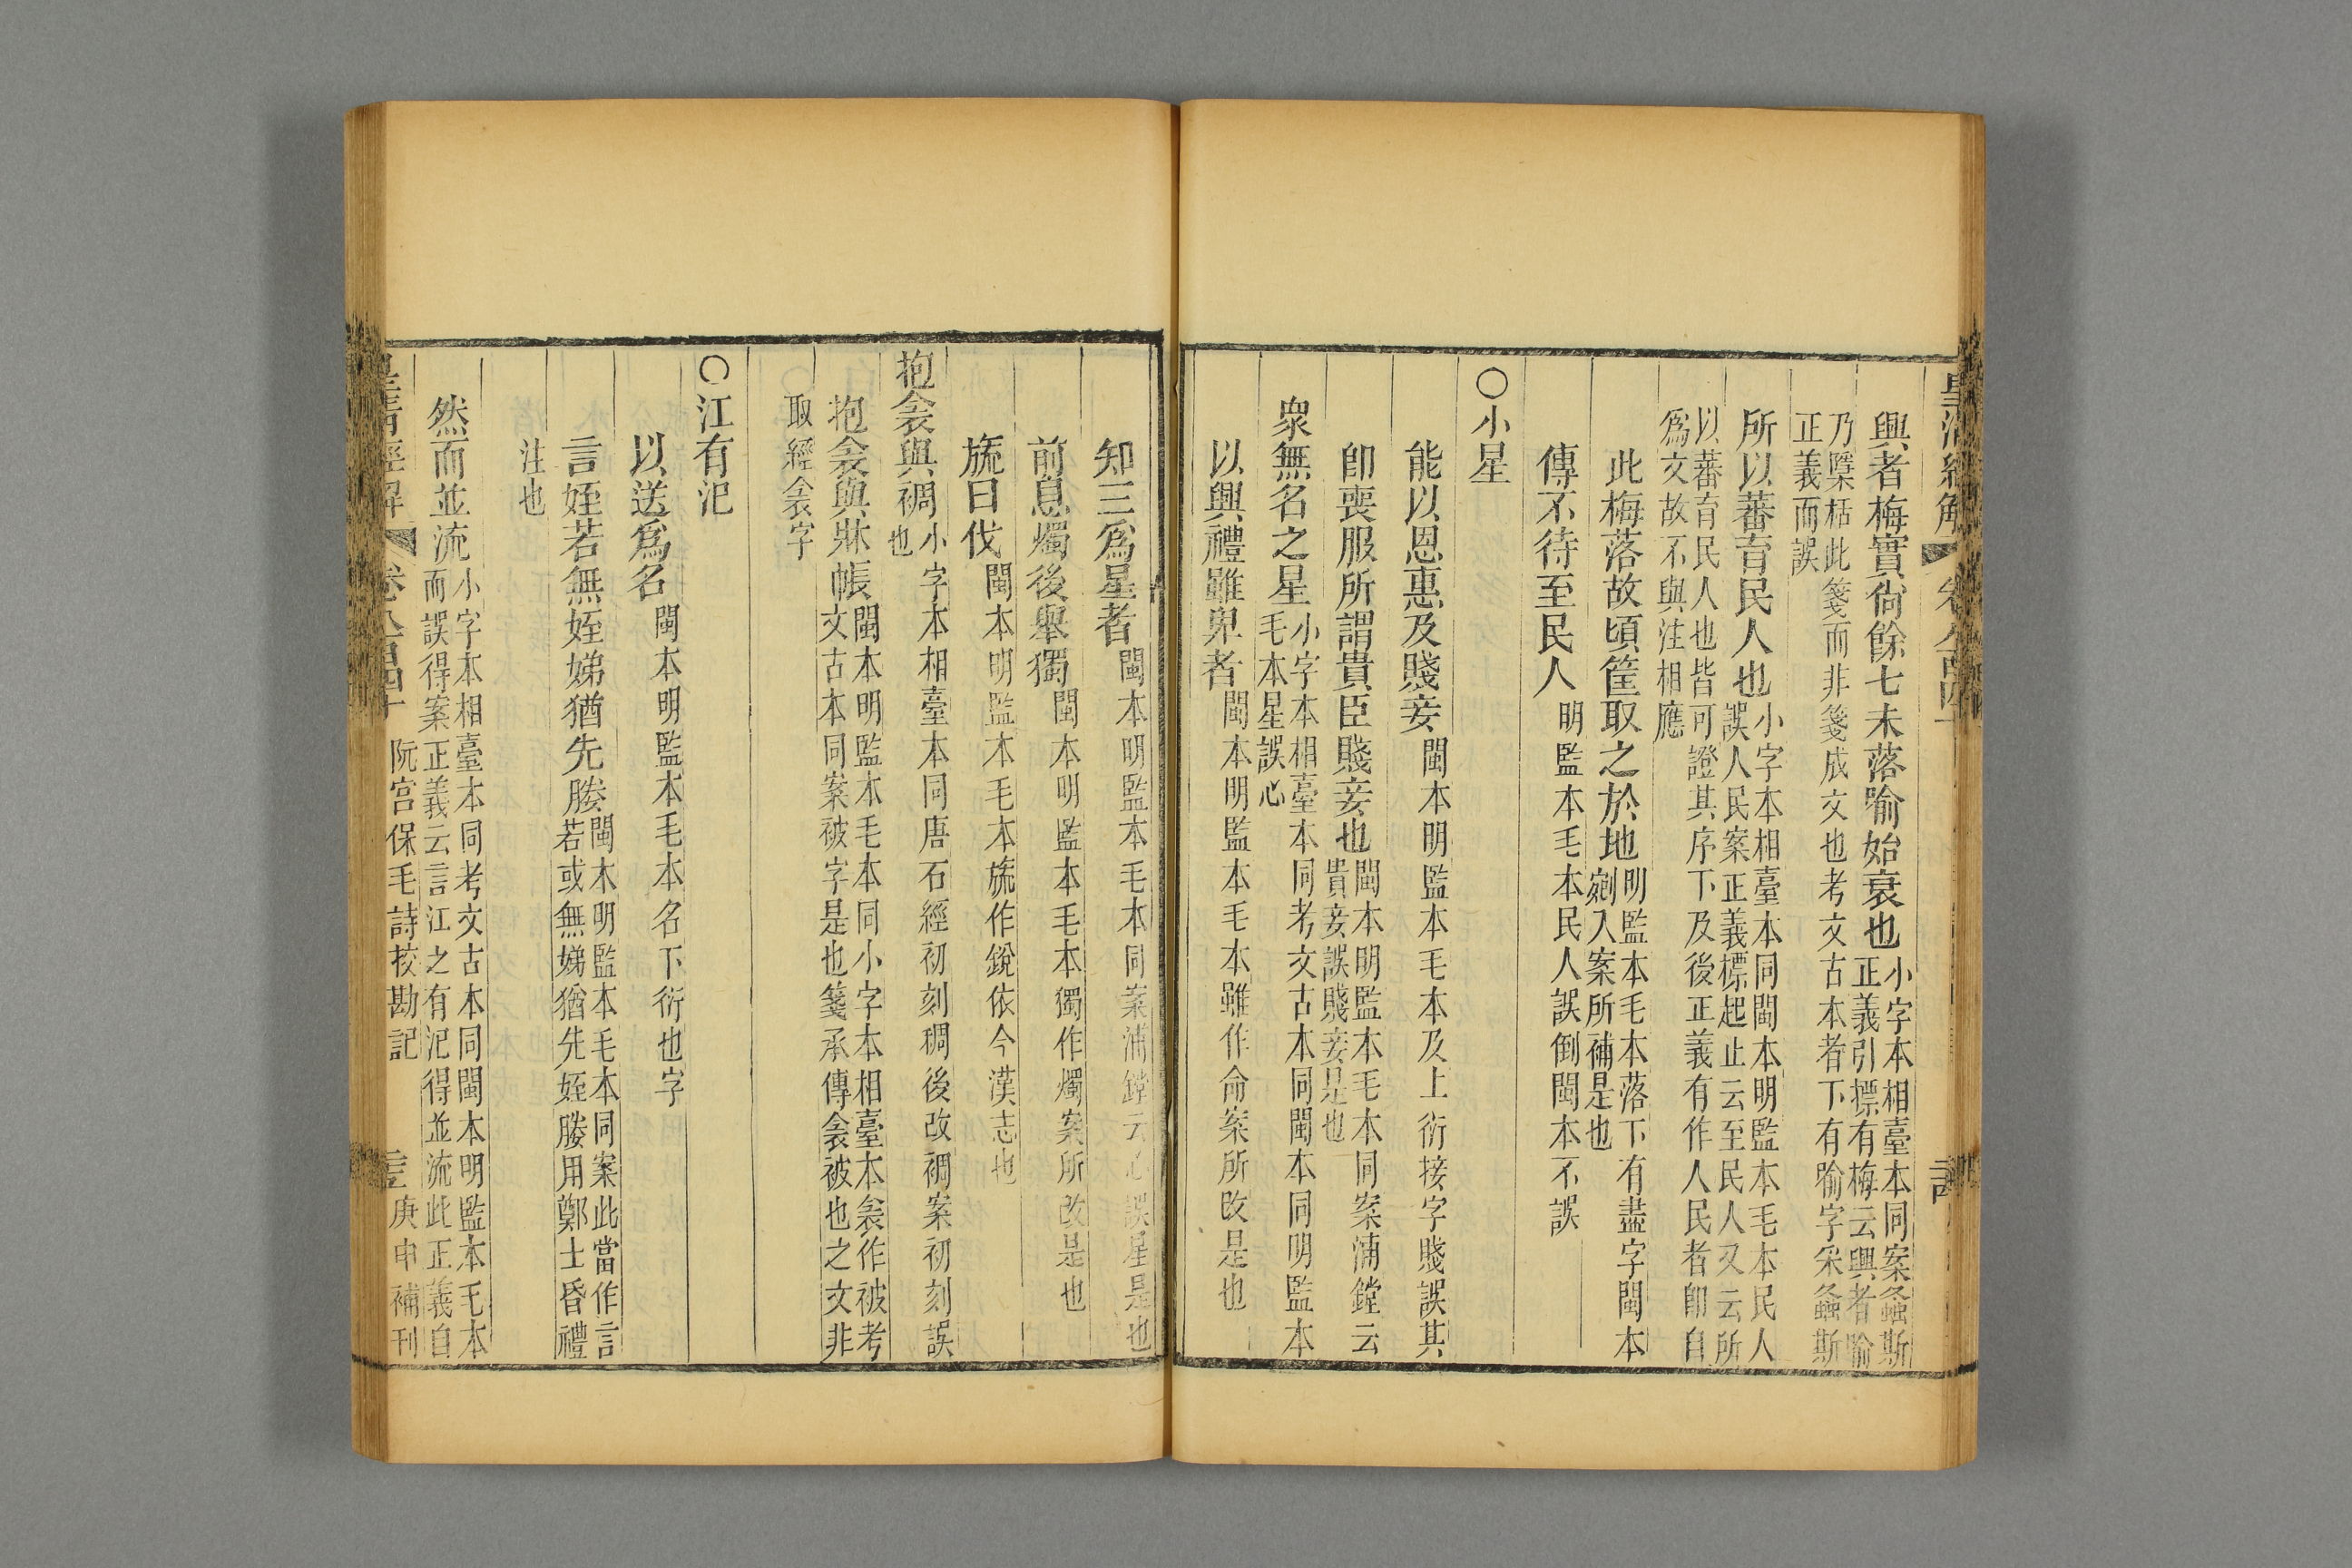 皇清經解 卷八百四十
興者梅實尙餘七未落喻始衰也小字本相臺本同案螽斯
正義引摽有梅云興者喻
乃櫽栝此箋而非箋成文也考文古本者下有喻字采螽斯
正義而誤
所以蕃育民人也小字本相臺本同閩本明監本毛本民人
誤人民案正義標起止云至民人又云所
以蕃育民人也皆可證其序下及後正義有作人民者卽自
爲文故不與注相應
此梅落故頃筐取之於地明監本毛本落下有盡字閩本
剜入案所補是也
傳不待至民人明監本毛本民人誤倒閩本不誤
〇小星
能以恩惠及賤妾閩本明監本毛本及上衍接字賤誤其
卽喪服所謂貴臣賤妾也閩本明監本毛本同案浦鏜云
貴妾誤賤妾是也
衆無名之星小字本相臺本同考文古本同閩本同明監本
毛本星誤心
以興禮雖卑者閩本明監本毛本雖作命案所改是也
知三爲星者閩本明監本毛本同案浦鏜云心誤星是也
前息燭後舉獨閩本明監本毛本獨作燭案所改是也
旒曰伐閩本明監本毛本旒作銳依今漢志也
抱衾與裯小字本相臺本同唐石經初刻稠後改裯案初刻誤
也
抱衾與牀帳閩本明監本毛本同小字本相臺本衾作被考
文古本同案被字是也箋承傳衾被也之文非
取經衾字
〇江有汜
以送爲名閩本明監本毛本名下衍也字
言姪若無姪娣猶先媵閩本明監本毛本同案此當作言
若或無娣猶先姪媵用鄭士昏禮
注也
然而並流小字本相臺本同考文古本同閩本明監本毛本
而誤得案正義云言江之有汜得並流此正義自
皇清經解 卷八百四十 阮宮保毛詩挍勘記 庚申補刊